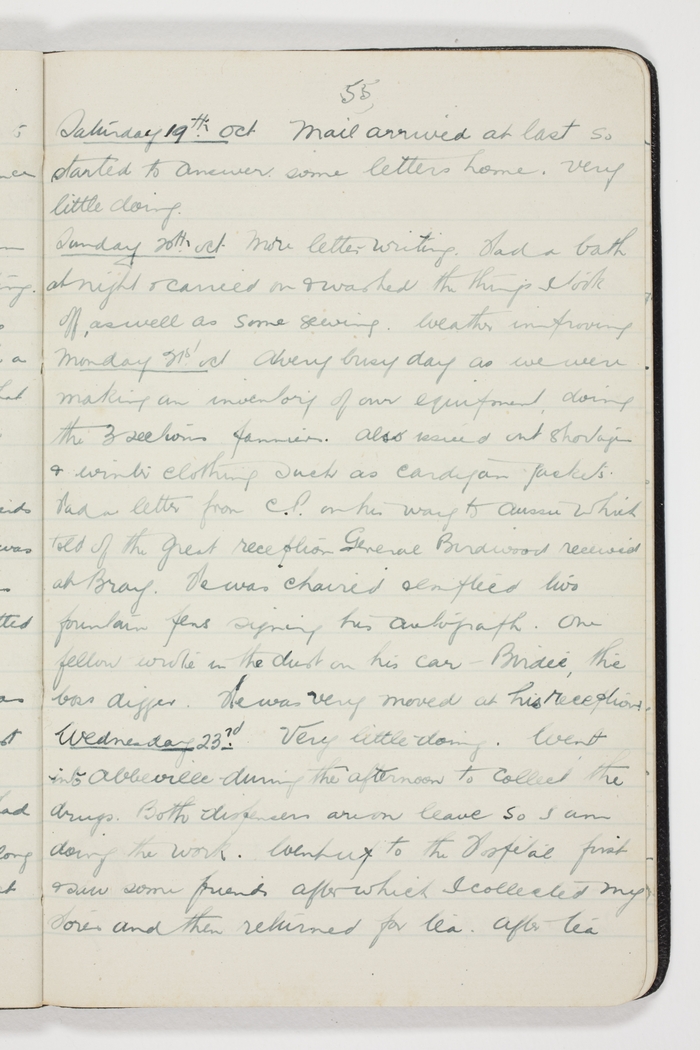 55
Saturday 19th Oct Mail arrived at last so
started to answer some letters home. Very
little doing.
Sunday 20th Oct. More letter writing. Had a bath
at night & carried on & washed the things I took
off, as well as some sewing. Weather improving
Monday 21st Oct A very busy day as we were
making an inventory of our equipment, doing
the 3 sections panniers. Also issued out shortages
& winter clothing such as cardigan jackets.
Had a letter from C.P. on his way to Aussie which
told of the great reception General Birdwood received
at Bray. He was chaired & emptied two
fountain pens signing his autograph. One
fellow wrote in the dust on his car - Birdie, the
boss digger. He was very moved at his reception.
Wednesday 23rd Very little doing. Went
into Abbeville during the afternoon to collect the
drugs. Both dispensers are on leave so I am
doing the work. Went up to the Hospital first
& saw some friends after which I collected my
stores and then returned for tea. After tea